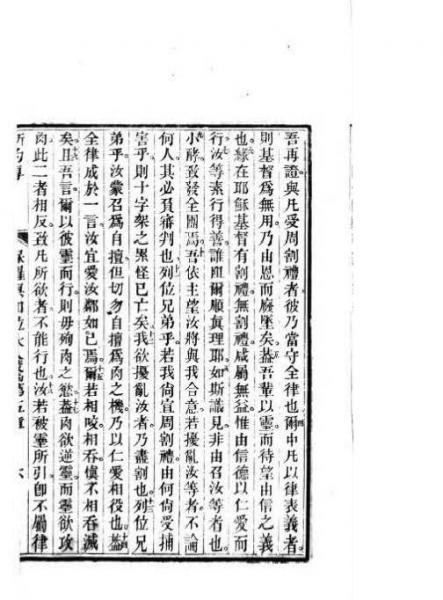 吾再證與凡受周割禮者彼乃當守全律也爾中凡以律表義者
則基督爲無用乃由恩而廢墜矣葢吾輩以靈而待望由信之義
也緣在耶穌基督有割禮無割禮咸屬無益惟由信德以仁愛而
行汝等素行得善誰阻爾順眞理耶如斯識見非由召汝等者也
小酵致發全團焉吾依主望汝將與我合意若擾亂汝等者不論
何人其必負審判也列位兄弟乎若我尙宣周割禮由何尙受捕
害乎則十字架之累怪已亡矣我欲擾亂汝者乃盡割也列位兄
弟乎汝蒙召爲自擅但切勿自擅爲肉之機乃以仁愛相役也葢
全律成於一言汝宜愛汝鄰如己焉爾若相咬相吞愼不相吞滅
矣且吾言爾以彼靈而行則毋殉肉之慾葢肉欲逆靈而靈欲攻
肉此二者相反致凡所欲者不能行也汝若被靈所引卽不屬律